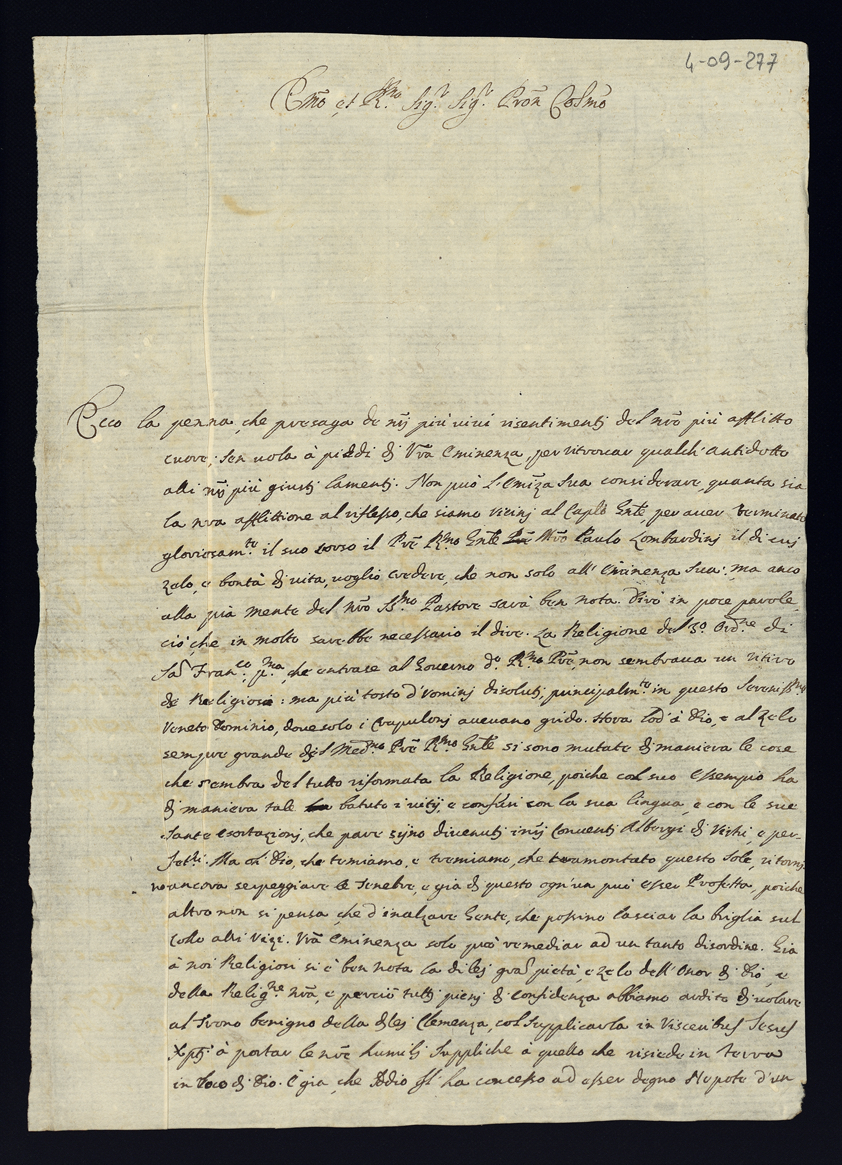 4-09-277
Emõ et R.mo Sig.r Sig.r Pron Colsmo
Ecco la penna, che presaga de nrj più vivi risentimentj del nrõ più afflitto
cuore, sen vola à piedi dj Vrã Eminenza, per ritrovar qualch'antidotto
alli nrj più giustj lamentj. Non può l'Eminza Sua considerare, quanta sia
la nra afflittione al riflesso, che siamo vicinj al Caplõ Gnle, per aver terminato
gloriosam.te il suo corso il Prẽ R.mo Gnle Mrõ Paulo Lombardinj il di cuj
zelo, e bontà dj vita, voglio credere, che non solo all'Eminenza Sua, ma anco
alla pia mente del nrõ SS.mo Pastore sarà ben nota. Dirò in poce parole,
ciò, che in molte sarebbe necessario il dire. La Religione del 3.o Ord.ne di
San Fran.co p.ma, che entrase al Governo d.o R.mo Prẽ, non sembrava un ritiro
de Religiosi: ma più tosto d'Vominj disolutj, principalm.te in questo Sereniss.mo
Veneto Dominio, dove solo i Crapulonj avevano grido. Hora lod'à Dio, e al zelo
sempre grande del Med.mo Prẽ R.mo Gnle si sono mutate dj maniera le cose
che sembra del tutto riformata la Religione, poiche col suo essempio ha
dj maniera tale batuto i vitij e confusi con la sua lingua, e con le sue
Sante esortazionj, che pare sijno divenuti i nrj Conventj Alberghi dj Vechi, e per-
fetti. Ma oh Dio, che temiamo, e tremiamo, che tramontato questo Sole, ritornj-
no ancora serpeggiare le Tenebre, e già dj questo ogn'un può esser Profetta, poiche
altro non si pensa, che d'inalzare Gente, che possino lasciar la briglia sul
Collo alli Vizi. Vrã Eminenza solo può remediar ad un tanto disordine. Già
à noi Religiosi si è ben nota la dj lej gran pietà, e zelo dell'Onor dj Dio, e
della Relig.ne Nrã, e perciò tuttj pienj dj Confidenza abbiamo ardito dj volare
al Trono benigno della dj lej Clemenza, col supplicarla in Visceribus Jesus
Xptj à portar le nrẽ humilj suppliche à quello che risiede in terra
in loco dj Dio. E già, che Iddio gl'ha concesso ad esser degno Nepote d'un